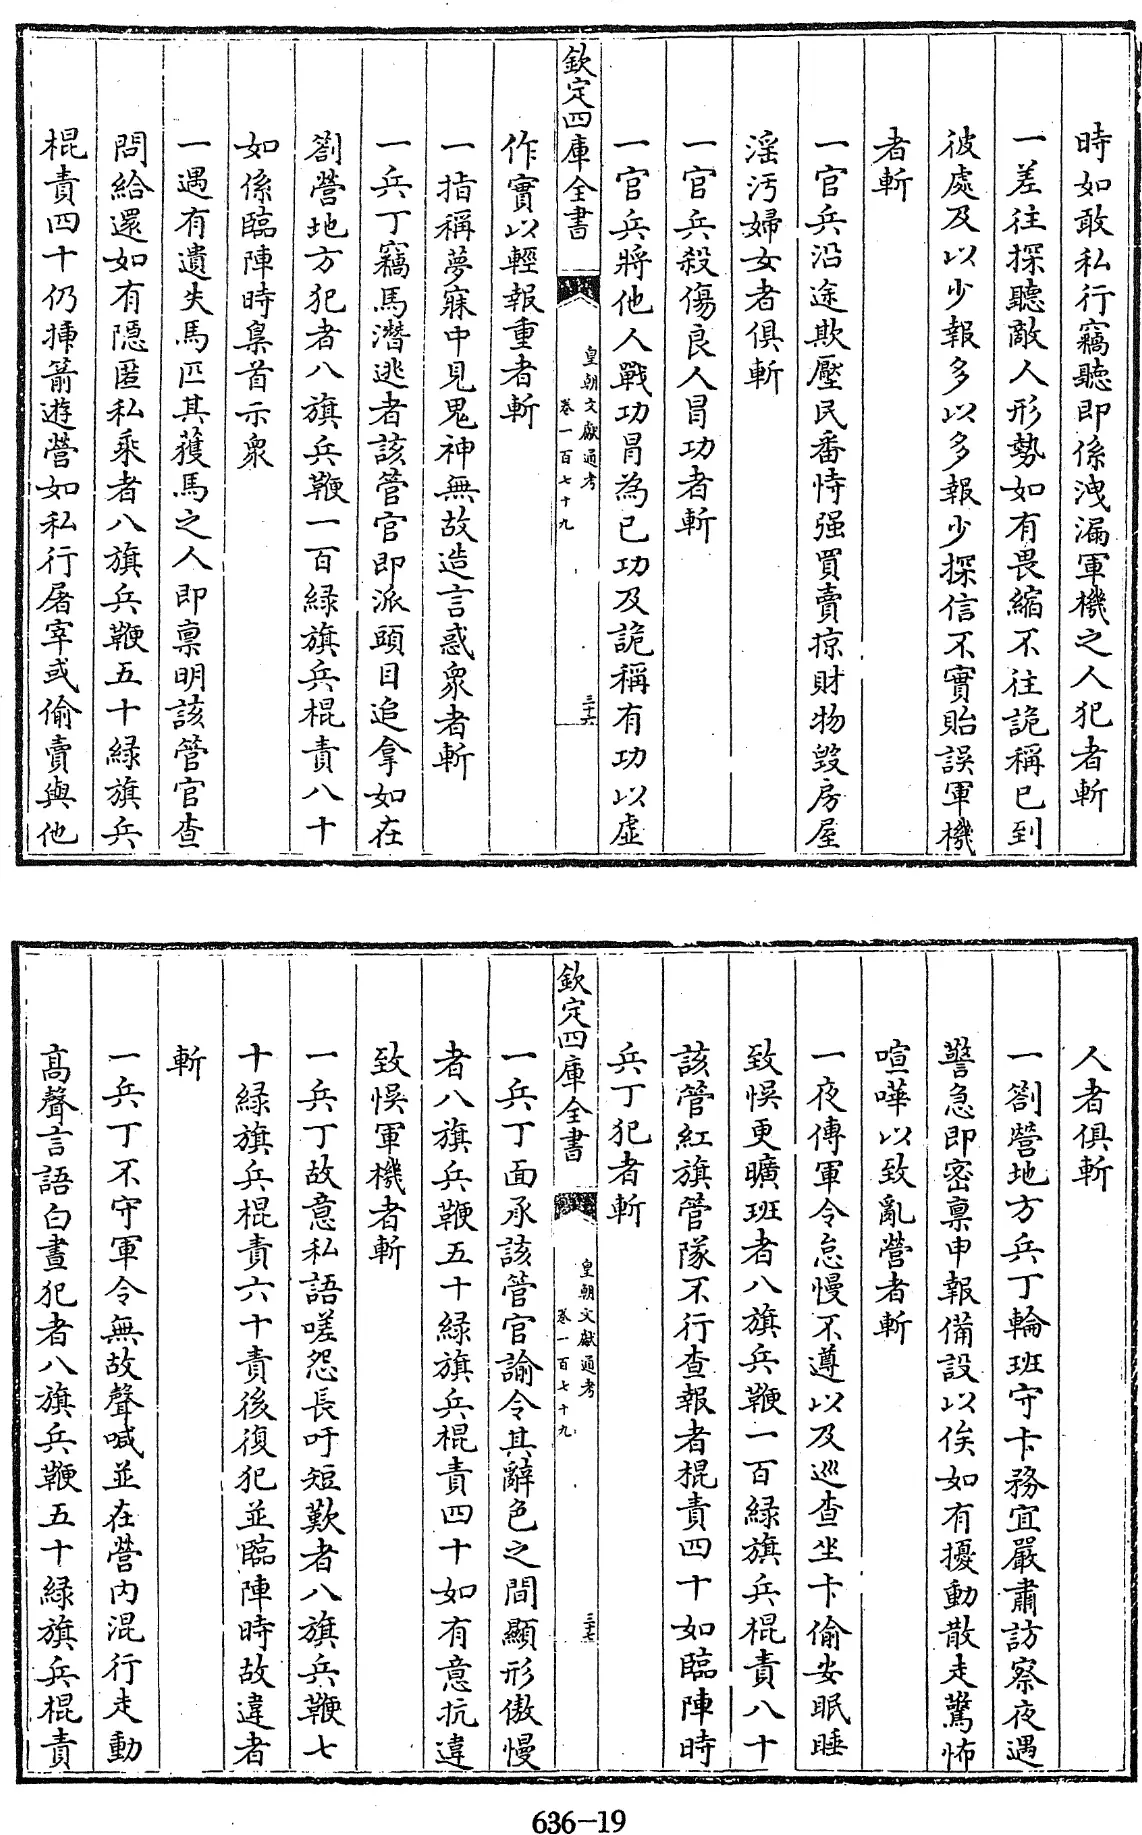 時如敢私行竊聽即係洩漏軍機之人犯者斬
一差往探聽敵人形勢如有畏縮不往詭稱已到
彼處及以少報多以多報少探信不實貽誤軍機
者斬
一官兵沿途欺壓民番恃强買賣掠財物毀房屋
淫污婦女者俱斬
一官兵殺傷良人冒功者斬
一官兵將他人戰功冒為已功及詭稱有功以虛
欽定四庫全書
皇朝文獻通考
卷一百七十九
三十六
作實以輕報重者斬
一指稱夢寐中見鬼神無故造言惑衆者斬
一兵丁竊馬潛逃者該管官即派頭目追拿如在
劄營地方犯者八旗兵鞭一百綠旗兵棍責八十
如係臨陣時梟首示衆
一遇有遺失馬匹其獲馬之人即禀明該管官查
問給還如有隱匿私乘者八旗兵鞭五十綠旗兵
棍責四十仍揷箭遊營如私行屠宰或偷賣與他
人者俱斬
一劄營地方兵丁輪班守卡務宜嚴肅訪察夜遇
警急即密禀申報備設以俟如有擾動散走驚怖
喧嘩以致亂營者斬
一夜傳軍令怠慢不遵以及巡查坐卡偷安眠睡
致悞更曠班者八旗兵鞭一百綠旗兵棍責八十
該管紅旗管隊不行查報者棍責四十如臨陣時
兵丁犯者斬
欽定四庫全書
皇朝文獻通考
卷一百七十九
三十七
一兵丁面承該管官諭令其辭色之間顯形傲慢
者八旗兵鞭五十綠旗兵棍責四十如有意抗違
致悞軍機者斬
一兵丁故意私語嗟怨長吁短歎者八旗兵鞭七
十綠旗兵棍責六十責後復犯並臨陣時故違者
斬
一兵丁不守軍令無故聲喊並在營内混行走動
髙聲言語白晝犯者八旗兵鞭五十綠旗兵棍責
636-19